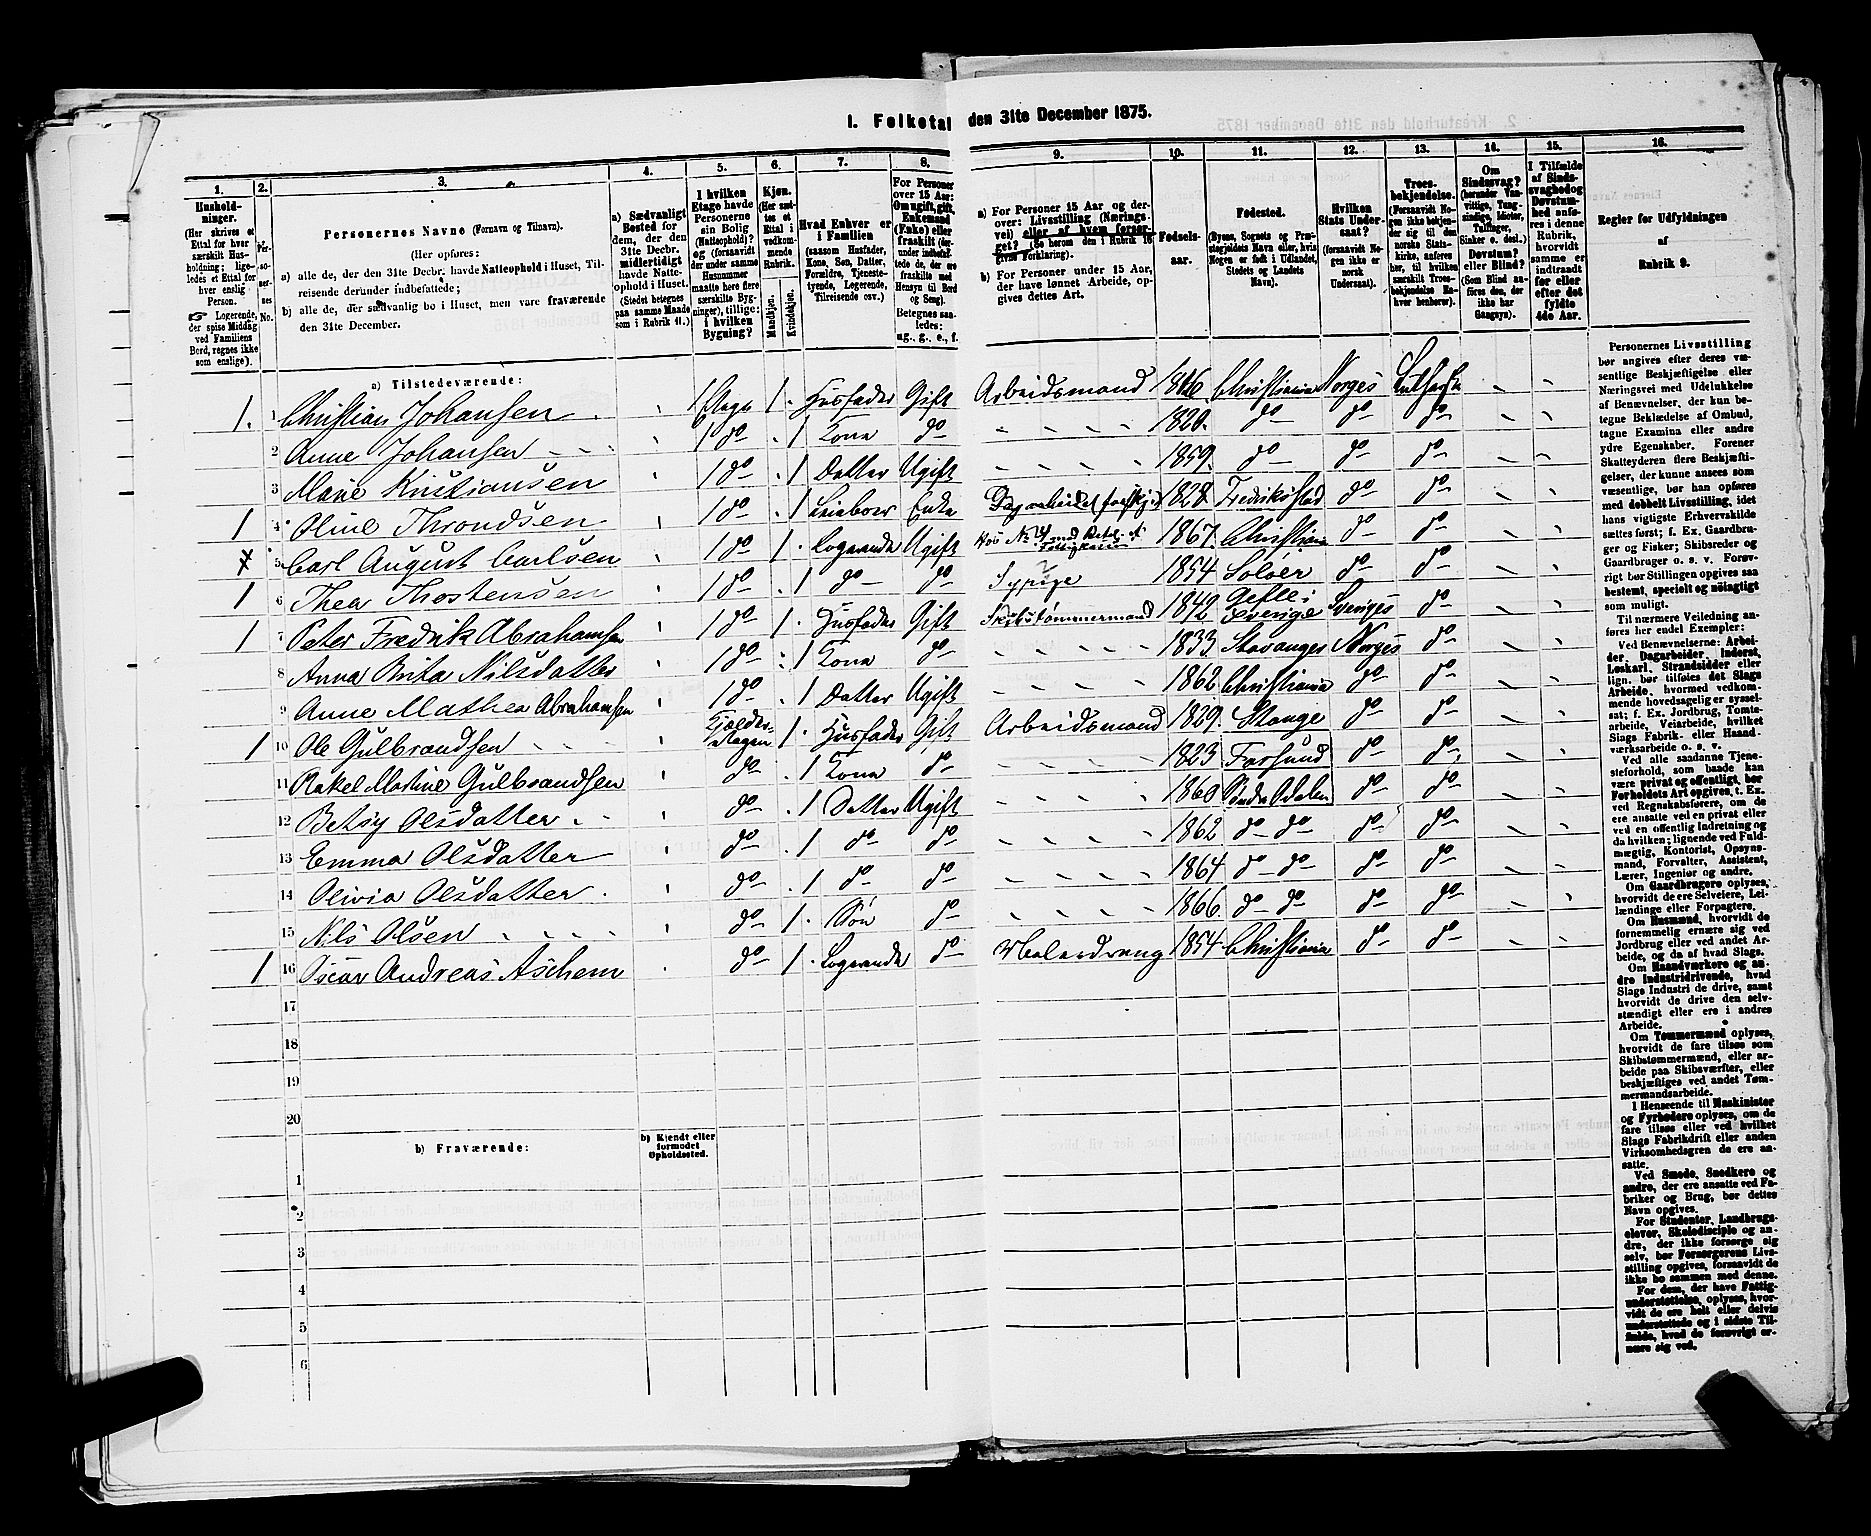 1. Folketal den 31te December 1875.
1. 2. 3. 4. 5. 6. 7. 8. 9. 10. 11. 12. 13. 14. 15. 16.
Hushold-
ninger.
(Her skrives et
Ettal for hver
særskilt Hus-
holdning; lige-
ledes et Ettal for
hver enslig
Person.
☞ Logerende,
der spise Middag
ved Familiens
Bord, regnes ikke
som enslige).
Per-
so-
ner-
nes
No.
Personernes Navne (Fornavn og Tilnavn).
(Her opføres:
a) alle de, der den 31te Decbr. havde Natteophold i Huset, Til-
reisende derunder indbefattede;
b) alle de, der sædvanlig bo i Huset, men vare fraværende
den 31te December.
a) Sædvanligt
Bosted for
dem, der den
31te Decbr.
midlertidigt
havde Natte-
ophold i Huset.
(Stedet betegnes
paa samme Maade
som i Rubrik 11.)
I hvilken
Etage havde
Personerne
sin Bolig
(Natteophold)?
og (forsaavidt
der under samme
Husnummer
maatte høre flere
særskilte Byg-
ninger), tillige:
i hvilken
Bygning?
Kjøn.
(Her sæt-
tes et
Ettal i
vedkom-
mende
Rubrik.
Mandkjøn.
Kvindekjøn.
Hvad Enhver er
i Familien
(saasom Husfader,
Kone, Søn, Datter,
Forældre, Tjeneste-
tyende, Logerende,
Tilreisende osv.)
For Personer
over 15 Aar:
Om ugift, gift,
Enkemand
(Enke) eller
fraskilt (der-
under indbefat-
tede de, der ere
fraskilte med
Hensyn til Bord
og Seng).
Betegnes saa-
ledes:
ug., g., e., f.
a) For Personer 15 Aar og der-
over: Livsstilling (Nærings-
vei) eller af hvem forsør-
get? (Se herom den i Rubrik 16
givne Forklaring).
b) For Personer under 15 Aar,
der have lønnet Arbeide, op-
gives dettes Art.
Fødsels-
aar.
Fødested.
(Byens, Sognets og Præ-
stegjeldets Navn eller, hvis
Nogen er født i Udlandet,
Stedets og Landets
Navn).
Hvilken
Stats Under-
saat?
(forsaavidt No-
gen ikke er
norsk
Undersaat).
Troes-
bekjendelse.
(Forsaavidt No-
gen ikke bekjen-
der sig til den
norske Stats-
kirke, anføres
her, til hvilken
særskilt Troes-
bekjendelse En-
hver henhører).
Om
Sindssvag?
(herunder Van-
vittige, Tung-
sindige, Idioter,
Tullinger,
Sinker o. desl.)
Døvstum?
eller Blind?
(Som Blind an-
føres den, der
ikke har
Gangsyn).
I Tilfælde
af Sinds-
svaghed og
Døvstum-
hed anfø-
res i denne
Rubrik,
hvorvidt
samme er
indtraadt
før eller
efter det
fyldte
4de Aar.
Regler for Udfyldningen
af
Rubrik 9.
a) Tilstedeværende:
1. 1 Christian Johansen 1 Etage 1 Husfader Gift Arbeidsmand Christiania Norges
2 Anne Johansen 1 do 1 Kona do 1820. do do do
3 Marie Kristiansen 1 do 1 Datter Ugift 1859. do do do
1 4 Oline Throndsen 1 do 1 Leieboer Enke 1828. Fredrikstad do do
5 Carl August Carlsen 1 do 1 Logerende Ugift 1867. Christiania do do
1 6 Thea Thostensen 1 do 1 do do Sypige 1854 Soløer do do
1 7 Peter Fredrik Abrahamsen 1 do 1 Husfader Gift Skibstømmermand 1842 Gefle i Sverige Sveriges do
8 Anna Brita Nilsdatter 1 do 1 Kona do 1833 Stavanger Norges do
9 Anne Mathea Abrahamsen 1 do 1 Datter Ugift 1862 Christiania do do
1 10 Ole Gulbrandsen Kjelder-etagen 1 Husfader Gift Arbeidsmand 1829. Stange do do
11 Rakel Martine Gulbrandsen do 1 Kona do 1823 Farsund do do
12 Betsy Olsdatter do 1 Datter Ugift 1860 Søndr Odalen do do
13 Emma Olsdatter do 1 do do 1862 do do do do
14 Olivia Olsdatter do 1 do do 1864 do do do do
15 Nils Olsen do 1 Søn do 1866 do do do do
1 16 Oscar Andreas Aschem do 1 Logerende do Malerdreng 1854 Christiania do do
17
18
19
20
b) Fraværende:
b) Kjendt eller
formodet
Opholdssted.
1
2
3
4
5
6
Personernes Livsstilling
bør angives efter deres væ-
sentlige Beskjæftigelse eller
Næringsvei med Udelukkelse
af Benævnelser, der kun be-
tegne Beklædelse af Ombud,
tagne Examina eller andre
ydre Egenskaber. Forener
Skatteyderen flere Beskjæfti-
gelser, der kunne ansees som
væsentlige, bør han opføres
med dobbelt Livsstilling, idet
hans vigtigste Erhvervskilde
sættes først; f. Ex. Gaardbru-
ger og Fisker; Skibsreder og
Gaardbruger o. s. v. Forøv-
rigt bør Stillingen opgives saa
bestemt, specielt og nøiagtigt
som muligt.
Til nærmere Veiledning an-
føres her endel Exempler:
Ved Benævnelserne: Arbei-
der, Dagarbeider, Inderst,
Løskarl, Strandsidder eller
lign. bør tilføies det Slags
Arbeide, hvormed vedkom-
mende hovedsagelig er syssel-
sat; f. Ex. Jordbrug, Tomte-
arbeide, Veiarbeide, hvilket
Slags Fabrik- eller Haand-
værksarbeide o. s. v.
Ved alle saadanne Tjene-
steforhold, som baade kan
være privat og offentligt, bør
Forholdets Art opgives, t. Ex.
ved Regnskabsførere, om de
ere ansatte ved en privat eller
ved en offentlig Indretning og
da hvilken; lignende ved Fuld-
mægtig, Kontorist, Opsyns-
mand, Forvalter, Assistent,
Lærer, Ingeniør og andre.
Om Gaardbrugere oplyses,
hvorvidt de ere Selveiere, Lei-
lændinge eller Forpagtere.
Om Husmænd, hvorvidt de
fornemmelig ernære sig ved
Jordbrug eller ved andet Ar-
beide, og da af hvad Slags.
Om Haandværkere og an-
dre Industridrivende, hvad
Slags Industri de drive, samt
hvorvidt de drive den selv-
stændigt eller ere i andres
Arbeide.
Om Tømmermænd oplyses,
hvorvidt de fare tilsøs som
Skibstømmermænd, eller ar-
beide paa Skibsværfter, eller
beskjæftiges ved andet Tøm-
mermandsarbeide.
I Henseende til Maskinister
og Fyrbødere oplyses, om de
fare tilsøs eller ved hvilket
Slags Fabrikdrift eller anden
Virksomhedsgren de ere an-
satte.
Ved Smede, Snedkere og
andre, der ere ansatte ved Fa-
briker og Brug, bør dettes
Navn opgives.
For Studenter, Landbrugs-
elever, Skoledisciple og an-
dre, der ikke forsørge sig
selv, bør Forsørgerens Livs-
stilling opgives, forsaavidt de
ikke bo sammen med denne.
For dem, der have Fattig-
understøttelse, oplyses, hvor-
vidt de ere helt eller delvis
understøttede og i sidste Til-
fælde, hvad de forøvrigt er-
nære sig ved.